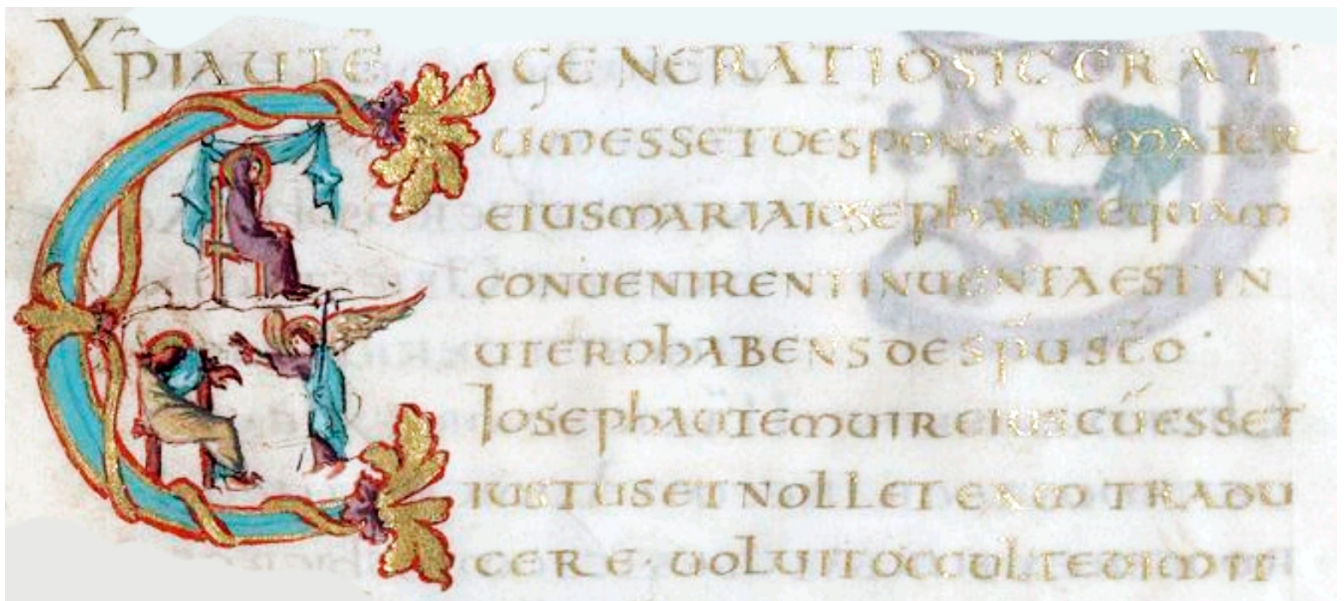 XP̄I AUTĒ GENERATIO SIC ERAT
CUM ESSET DESPONSATA MATER
EIUS MARIA IOSEPH ANTEQUAM
CONVENIRENT INVENTA EST IN
UTERO HABENS DE SP̄U SC̄O ·
IOSEPH AUTEM VIR EIUS CŪ ESSET
IUSTUS ET NOLLET EAM TRADU
CERE · VOLUIT OCCULTE DIMIT